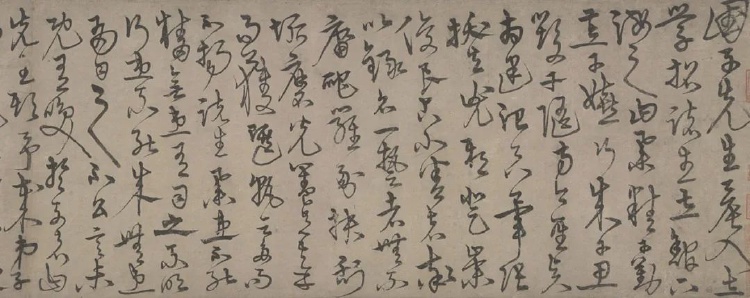 國子先生晨入太
學招諸生立館下
誨之曰業精于勤
荒于嬉行成于思
毀于隨方今聖賢
相逢治具畢張
拔去兇邪登崇
俊良占小善者率
以錄名一藝者無不
庸爬羅剔抉刮
垢磨光蓋有幸
而獲選孰云多而
不揚諸生業患不能
精無患有司之不明
行患不能成無患
有司之不公言未
既有笑于列者曰
先生欺予哉弟子